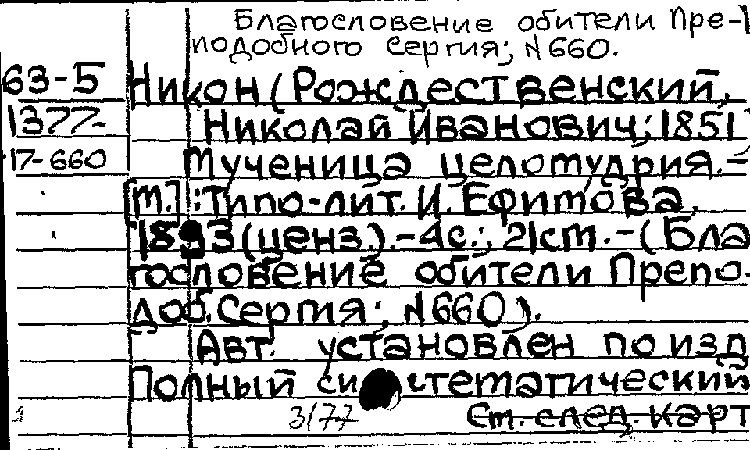 Благословение обители Пре-
подобного Сергия; N660.
63-5 Никон (Рождественский,
1377- Николай Иванович; 1851
17-660 Мученица целомудрия.-
[М.]: Типо-лит. И. Ефимова,
1893 (ценз.).-4с.; 21см.-(Бла
гословение обители Препо-
доб. Сергия; N660).
Авт. установлен по изд
Полный си стематический
3/77 См. след. карт